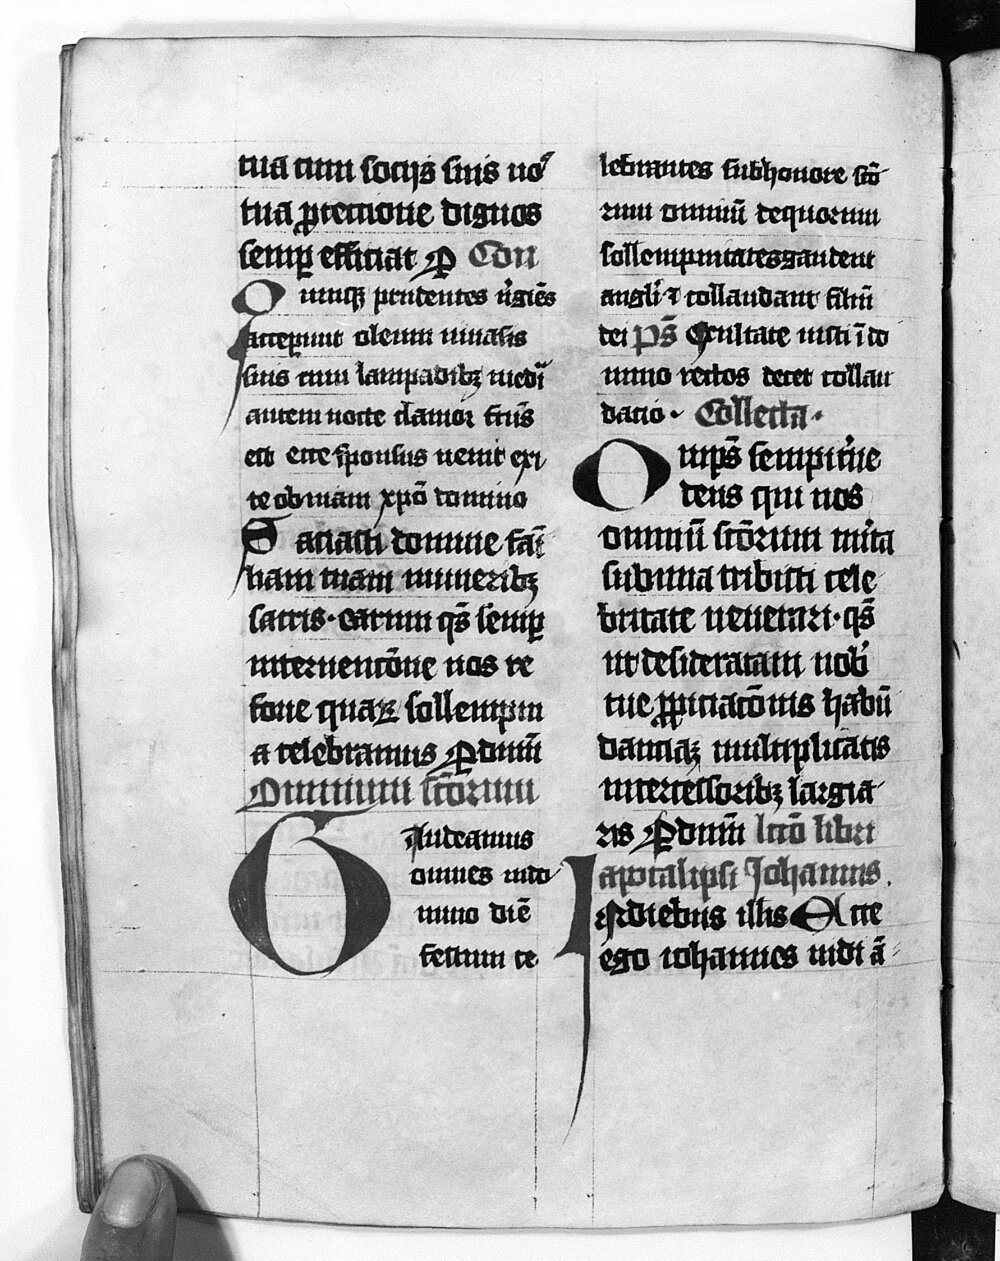 tua cum socijs suis uo
tua ꝓtectione dignos
semp̱ efficiat P̱ Con
Quinqꝫ prudentes ũgĩes
acceperunt oleum in uasis
suis cum lampadibꝫ medi
autem nocte clamor fcũs
est ecce sponsus uenit exi
te obuiam xp̃o domino
Saciasti domine fãi
liam tuam muneribꝫ
sacris · earum q̃s semp̱
interuencõne nos re
foue quaꝝ sollempni
a celebramus P̱ dnm̃
Omnium sc̃orum
Gaudeamus
omnes in do
mino diẽ
festum ce
lebrantes sub honore sc̃o
rum omniũ de quorum
sollempnitate gaudent
angli ⁊ collaudant filiũ
dei p̃s Exultate iusti ĩ do
mino rectos decet collau
dacio · Collecta ·
Omps̃ sempit̃ne
deus qui nos
omniũ sc̃orum mĩta
sub una tribuisti cele
britate uenerari · q̃s
ut desideratam nob̃
tue ꝓpiciacõnis habũ
danciã multiplicatis
intercessoribꝫ largia
ris P̱ dnm̃ lcc̃o libri
apocalipsi Johannis.
In diebus illis Ecce
ego iohannes uidi ã